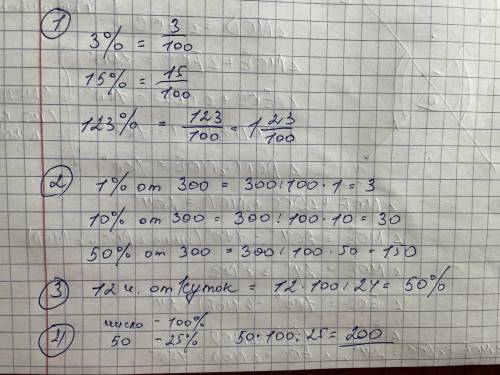 1
3% = 3/100
15% = 15/100
123% = 123/100 = 1 23/100
2
1% от 300 = 300:100·1 = 3
10% от 300 = 300:100·10 = 30
50% от 300 = 300:100·50 = 150
3
12 ч. от 1 суток = 12·100:24 = 50%
4
число - 100%
50 - 25% 50·100:25 = 200